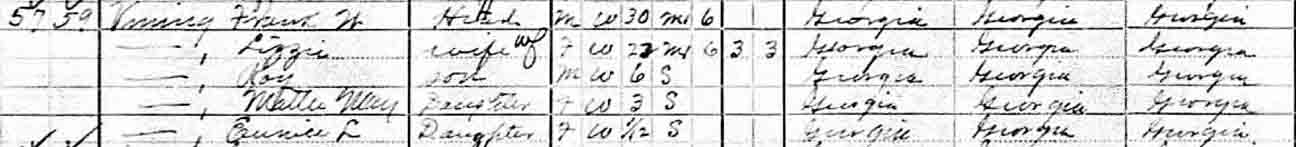 57 59 Vining Frank W Head M W 30 M1 6 Georgia Georgia Georgia
—, Lizzie wife wf F W 22 M1 6 3 3 Georgia Georgia Georgia
—, Roy son M W 6 S Georgia Georgia Georgia
—, Mattie May Daughter F W 3 S Georgia Georgia Georgia
—, Eunice L Daughter F W 1/12 S Georgia Georgia Georgia